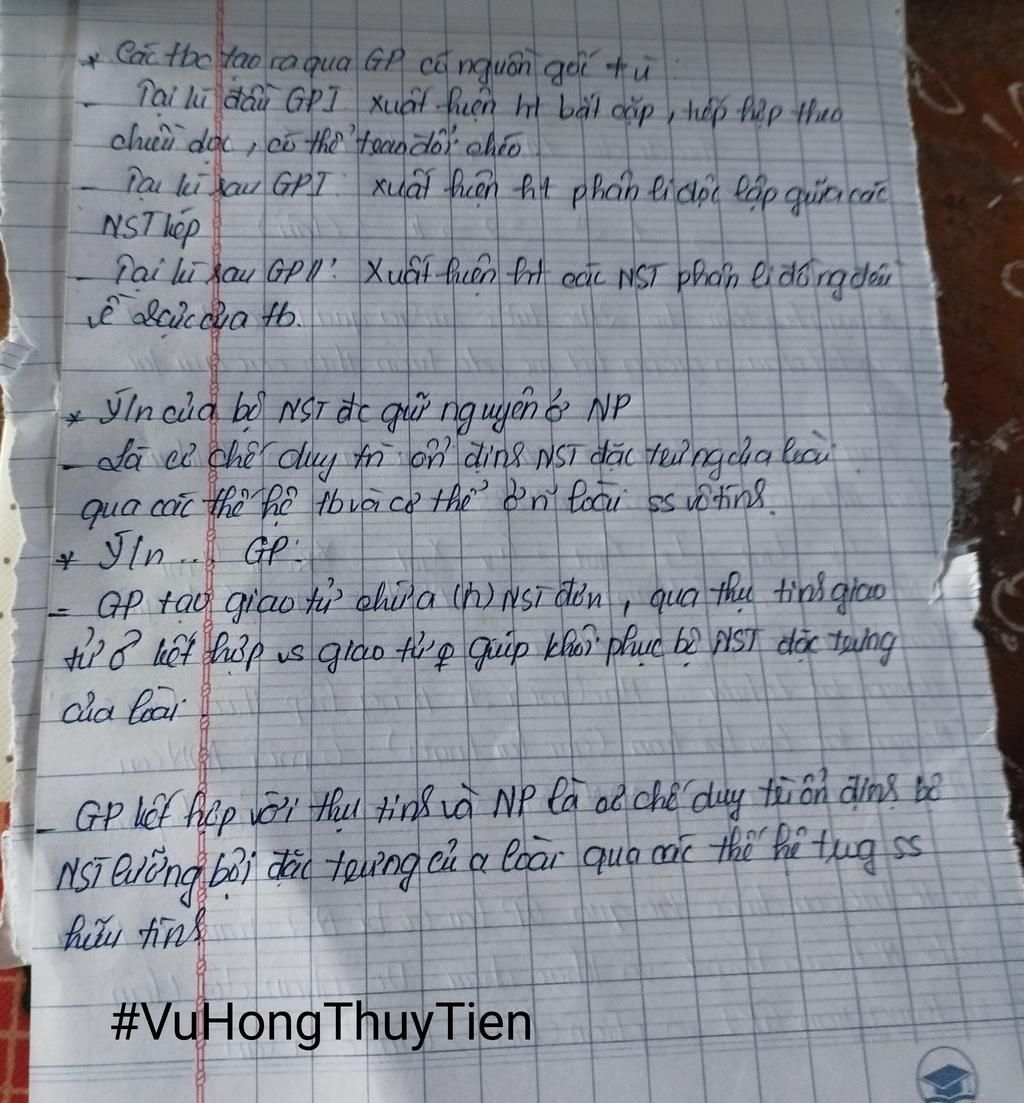 * Các tbc tạo ra qua GP có nguồn gốc từ:
- Tại kì đầu GPI xuất hiện ht bắt cặp, tiếp hợp theo
chiều dọc, có thể trao đổi chéo
- Tại kì sau GPI: xuất hiện ht phân li độc lập giữa các
NST kép
- Tại kì sau GPII: Xuất hiện ht các NST phân li đồng đều
về 2 cực của tb.
* Ý/n của bộ NST đc giữ nguyên ở NP
- Là cơ chế duy trì ổn định NST đặc trưng của loài
qua các thế hệ tb và cơ thể ở n~ loài ss vô tính.
* Ý/n ... GP:
- GP tạo giao tử chứa (n) NST đơn, qua thụ tinh giao
tử ♂ kết hợp vs giao tử ♀ giúp khôi phục bộ NST đặc trưng
của loài
- GP kết hợp với thụ tinh và NP là cơ chế duy trì ổn định bộ
NST lưỡng bội đặc trưng của loài qua các thế hệ trog ss
hữu tính
#VuHongThuyTien